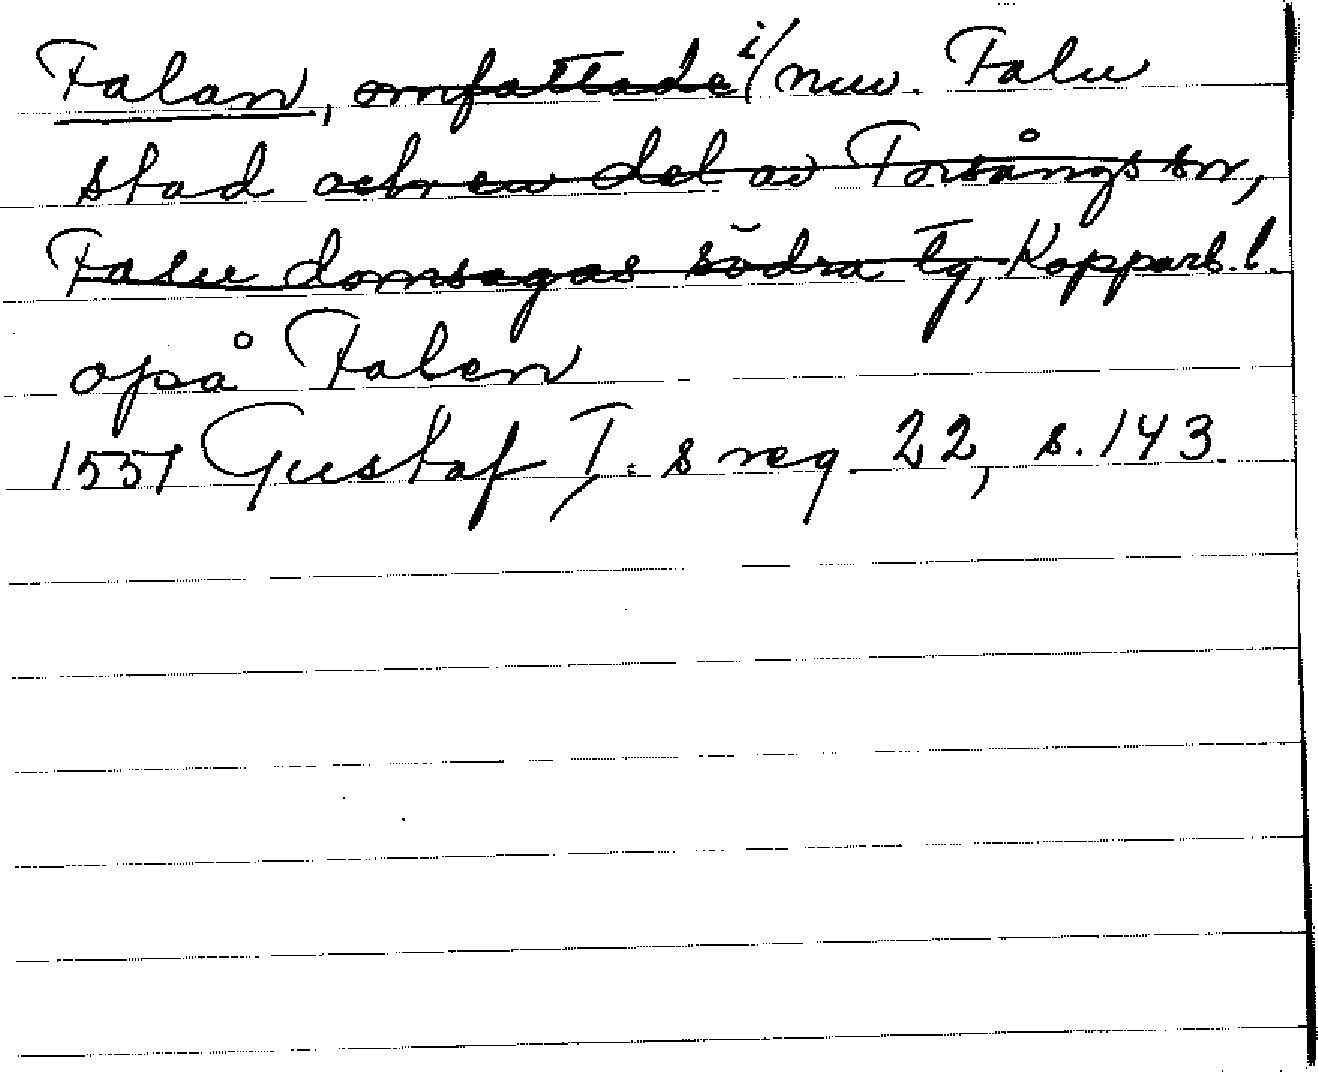 Falan, omfattade i/ nuv. Falu
stad och en del av Torsångs sn,
Falu domsagas södra tg, Kopparb. l.
opå Falen
1557 Gustaf I:s reg. 22, s. 143.